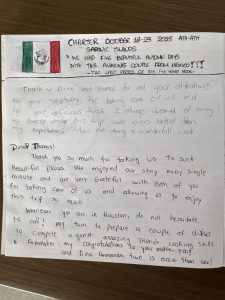 CHARTER OCTOBER 18-23 2025 ATH-ATH
SARONIC ISLANDS
"WE HAD FIVE BEAUTIFUL AUTUMN DAYS
WITH THIS AMAZING COUPLE FROM MEXICO!!!
- THE LAST GUESTS OF THIS
Thank u Dina and Thanos for all your attentions
for your hospitality, for taking care of us and
for your delicious food. I always dreamed of doing
this trip was even better than
my expectations. You are doing a wonderful work
Dina & Thanos!
Thank you so much for taking us to such
Beautiful places. We enjoyed our stay every single
minute and are very grateful with both of you
for taking care of us and allowing us to enjoy
this trip so much.
Whenever you are in Houston, do not hesitate
to call! My turn to prepare a couple of dishes
to compete against amazing Thanos cooking skills
my congratulations to your master
and Dina. Remember two is easier than one!